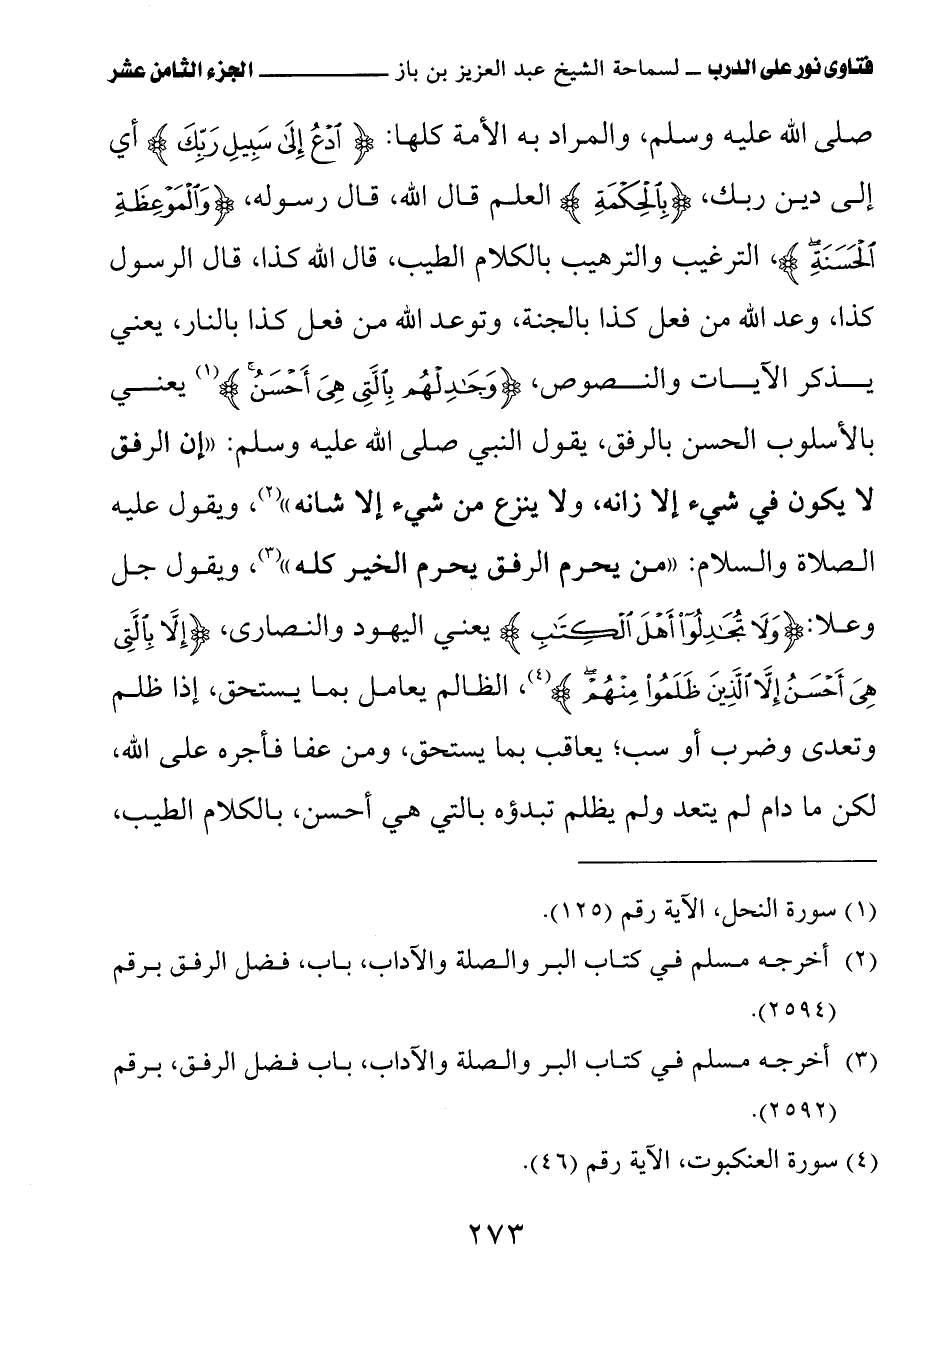 فتاوى نور على الدرب ــ لسماحة الشيخ عبد العزيز بن باز ــــــــــــ الجزء الثامن عشر
صلى الله عليه وسلم، والمراد به الأمة كلها: ﴿ ٱدْعُ إِلَىٰ سَبِيلِ رَبِّكَ ﴾ أي
إلى دين ربك، ﴿بِٱلْحِكْمَةِ ﴾ العلم قال الله، قال رسوله، ﴿وَٱلْمَوْعِظَةِ
ٱلْحَسَنَةِۖ ﴾، الترغيب والترهيب بالكلام الطيب، قال الله كذا، قال الرسول
كذا، وعد الله من فعل كذا بالجنة، وتوعد الله من فعل كذا بالنار، يعني
يذكر الآيات والنصوص، ﴿وَجَٰدِلْهُم بِٱلَّتِى هِىَ أَحْسَنُۚ ﴾(١) يعني
بالأسلوب الحسن بالرفق، يقول النبي صلى الله عليه وسلم: «إن الرفق
لا يكون في شيء إلا زانه، ولا ينزع من شيء إلا شانه»(٢)، ويقول عليه
الصلاة والسلام: «من يحرم الرفق يحرم الخير كله»(٣)، ويقول جل
وعلا: ﴿وَلَا تُجَٰدِلُوٓا۟ أَهْلَ ٱلْكِتَٰبِ ﴾ يعني اليهود والنصارى، ﴿إِلَّا بِٱلَّتِى
هِىَ أَحْسَنُ إِلَّا ٱلَّذِينَ ظَلَمُوا۟ مِنْهُمْۖ ﴾(٤)، الظالم يعامل بما يستحق، إذا ظلم
وتعدى وضرب أو سب؛ يعاقب بما يستحق، ومن عفا فأجره على الله،
لكن ما دام لم يتعد ولم يظلم تبدؤه بالتي هي أحسن، بالكلام الطيب،
(١) سورة النحل، الآية رقم (١٢٥).
(٢) أخرجه مسلم في كتاب البر والصلة والآداب، باب، فضل الرفق برقم
(٢٥٩٤).
(٣) أخرجه مسلم في كتاب البر والصلة والآداب، باب فضل الرفق، برقم
(٢٥٩٢).
(٤) سورة العنكبوت، الآية رقم (٤٦).
٢٧٣